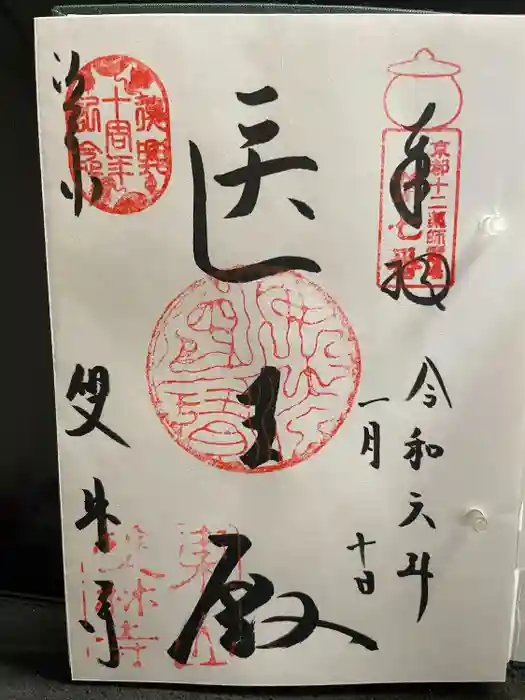 奉拝
京都十二薬師霊場
第七番
令和六年
一月十日
医王殿
復興
十周年
記念
双林寺
東山
雙林寺